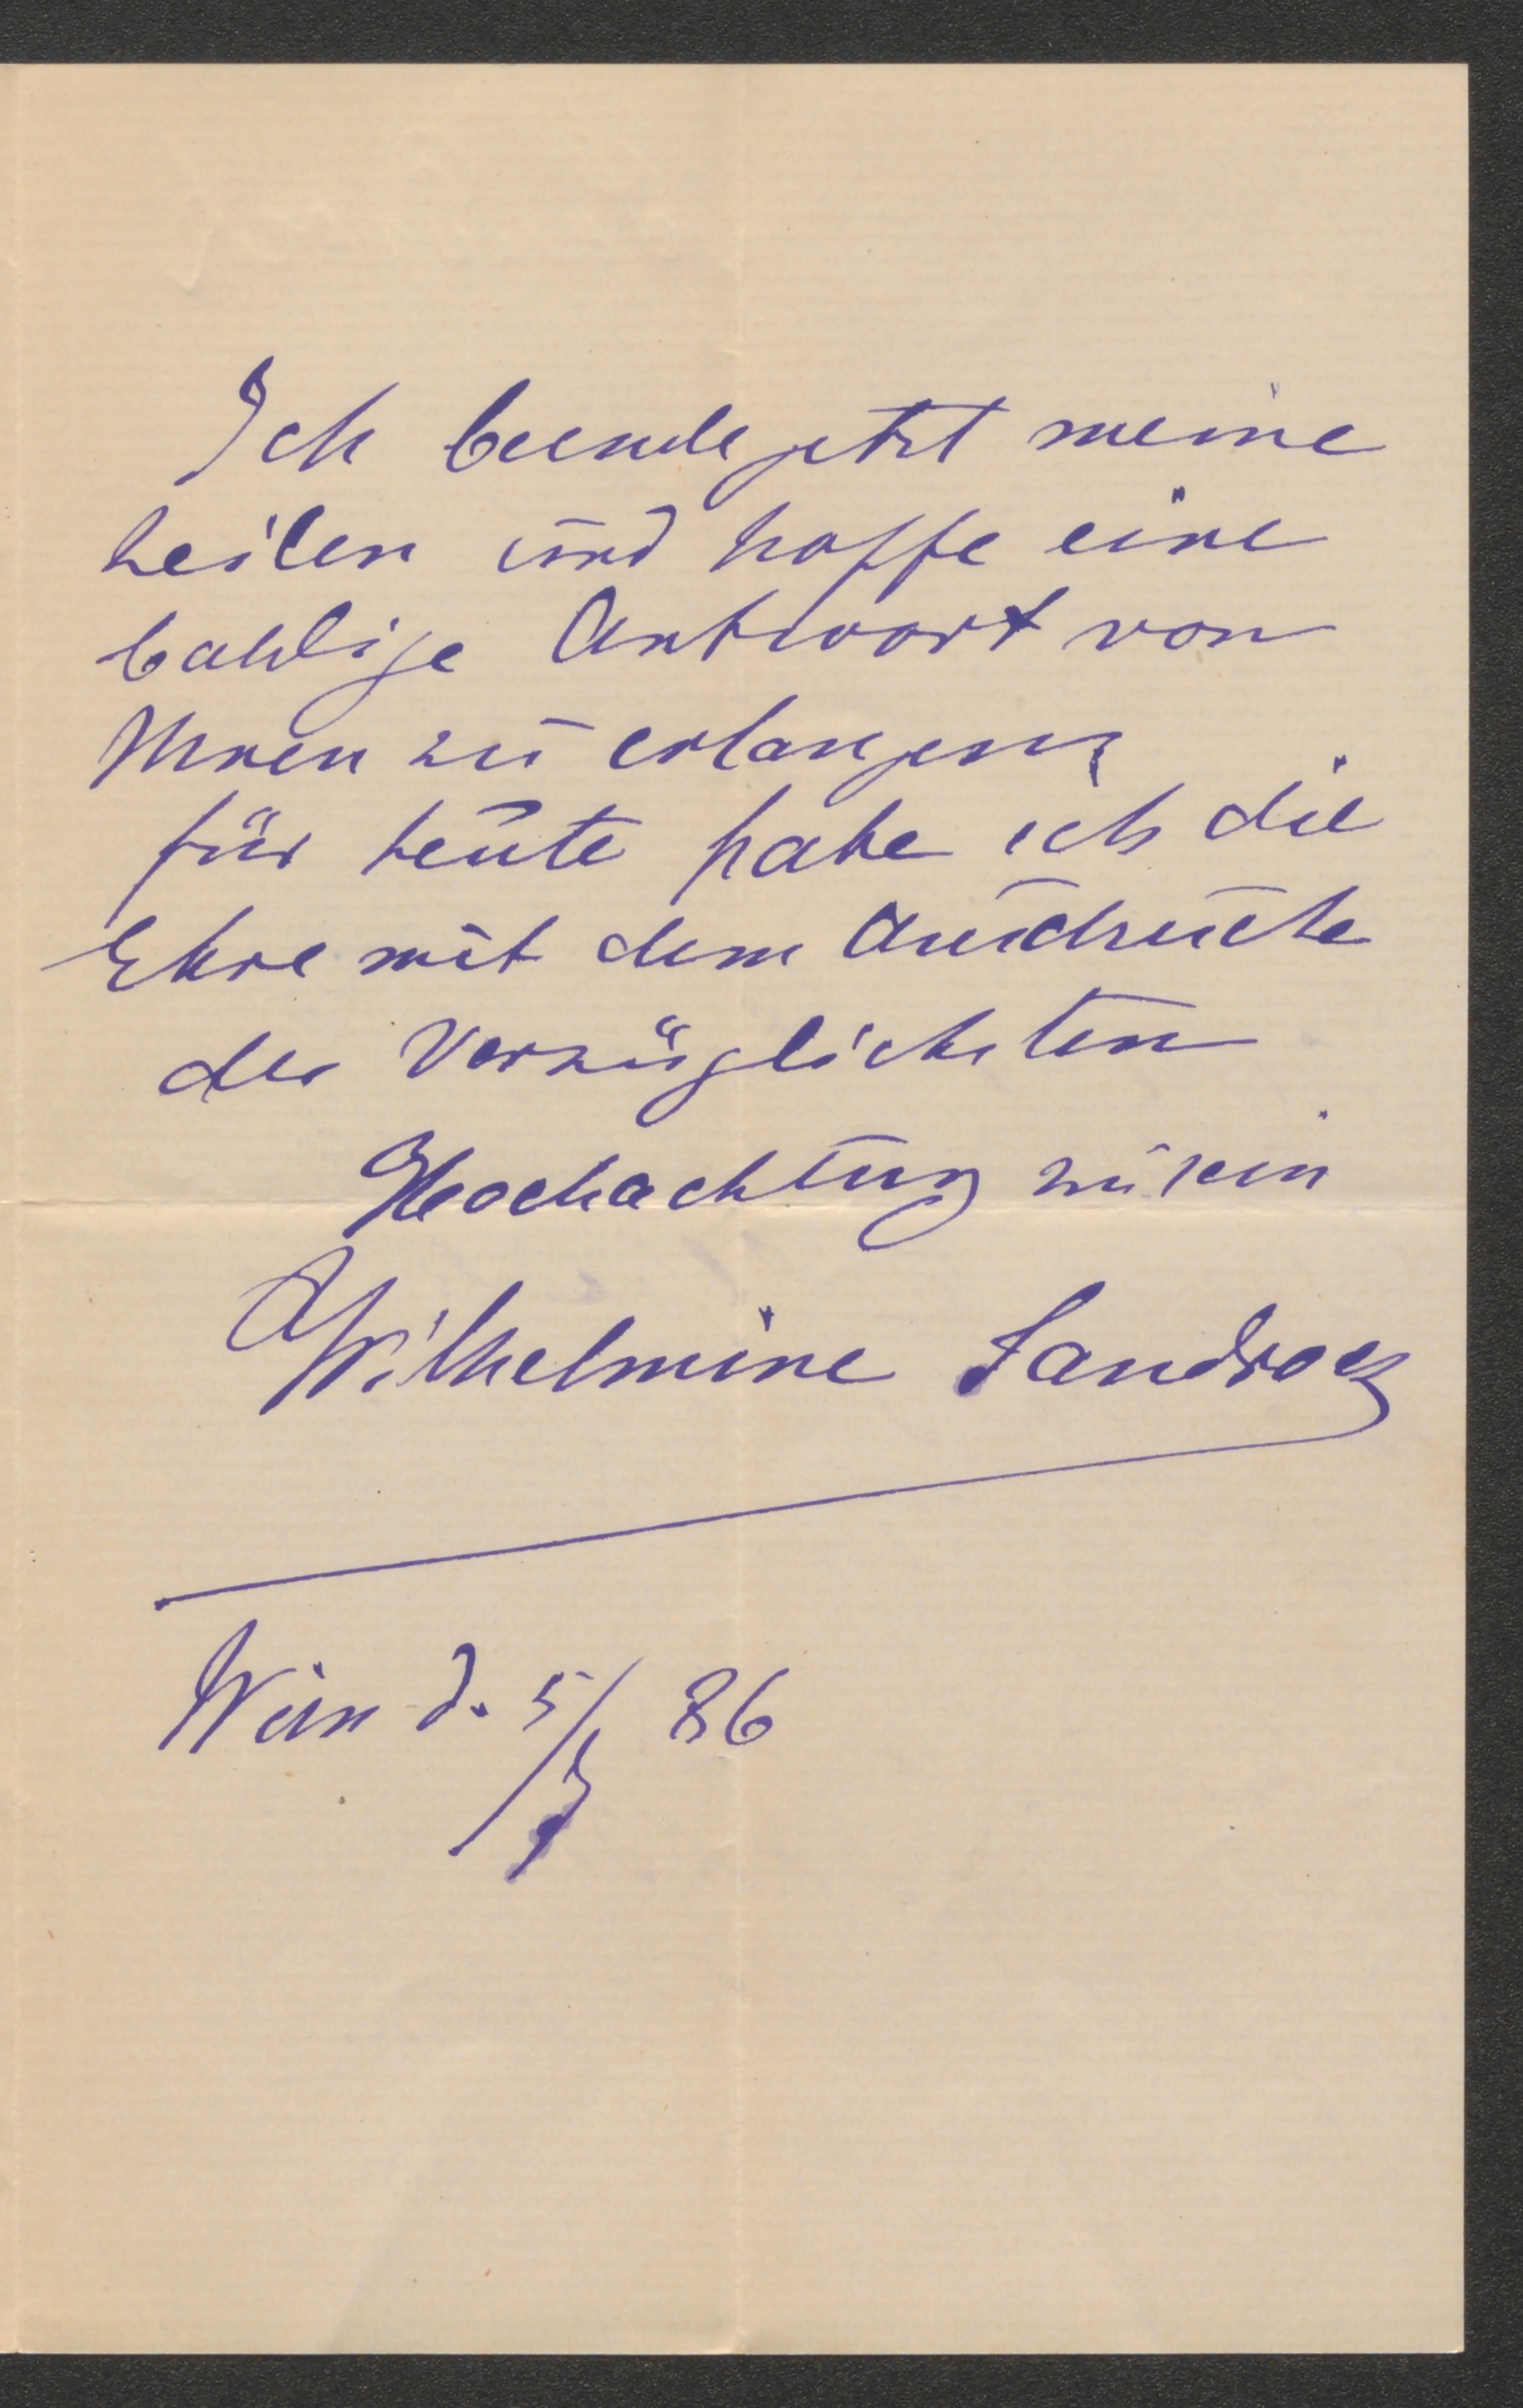 Ich beende jetzt meine
Zeilen und hoffe eine
baldige Antwort von
Ihnen zu erlangen,
für heute habe ich die
Ehre mit dem Ausdrucke
der Vorzüglichsten
Hochachtung zu sein
Wilhelmine Sandrock
Wien d. 5/ 86